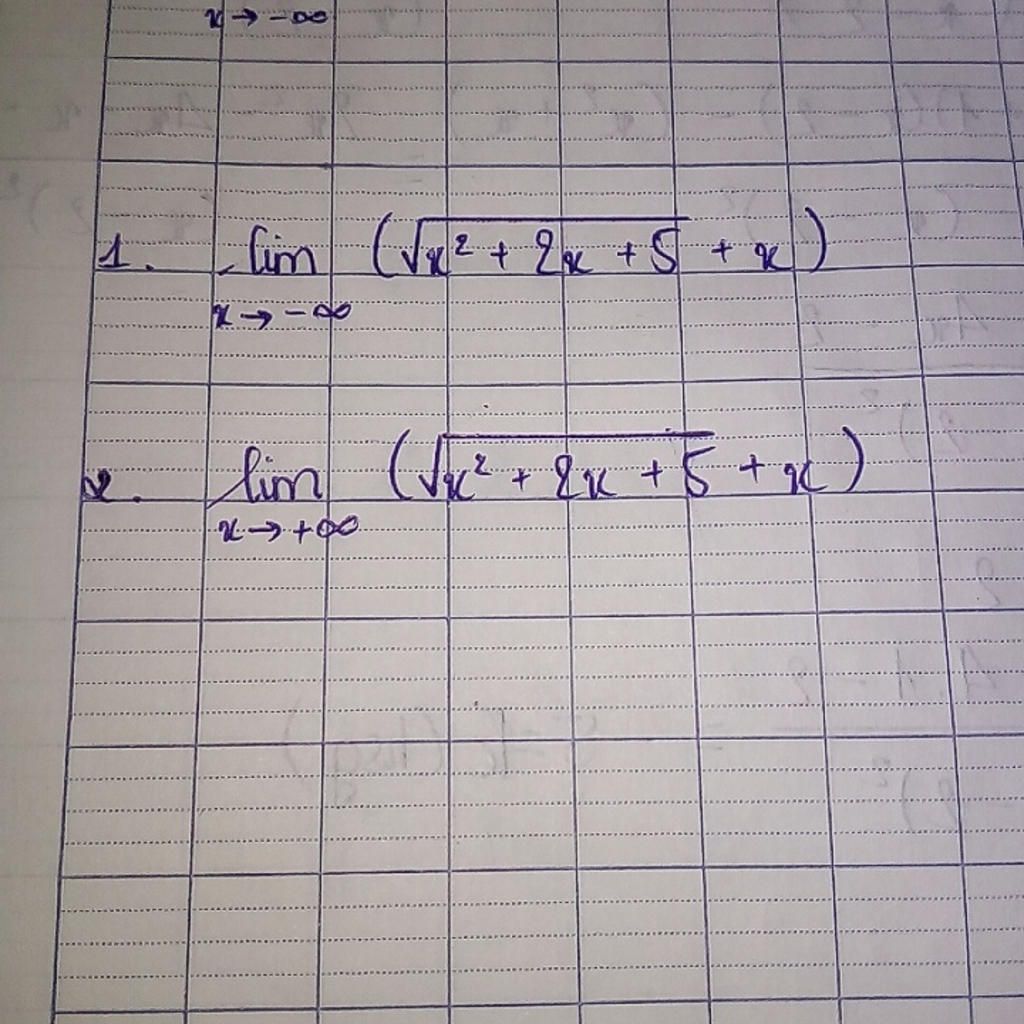 x → -∞
1. lim (√x² + 2x + 5 + x)
x → -∞
2. lim (√x² + 2x + 5 + x)
x → +∞